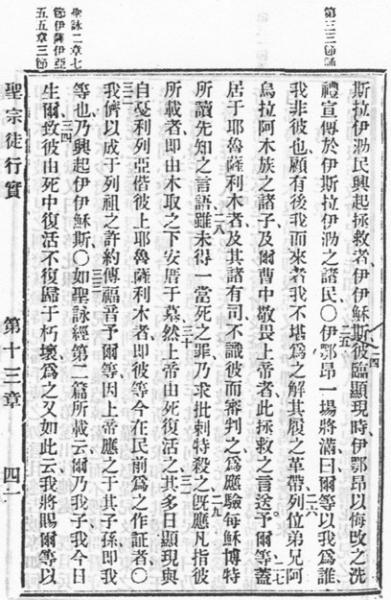 第三三節誦
聖詠二章七
節伊薩伊亞
五五章三節
二四
斯拉伊泐民興起拯救者伊伊穌斯彼臨顯現時伊鄂昂以悔改之洗
二五
禮宣傳於伊斯拉伊泐之諸民〇伊鄂昂一塲將滿曰爾等以我爲誰
二六
我非彼也顧有後我而來者我不堪爲之解其履之革帶列位弟兄阿
二七
烏拉阿木族之諸子及爾曹中敬畏上帝者此拯救之言送予爾等蓋
居于耶魯薩利木者及其諸有司不識彼而審判之爲應驗每穌博特
二八
二九
所讀先知之言語雖未得一當死之罪乃求批剌特殺之旣應凡指彼
三十
三一
所載者即由木取之下安厝于墓然上帝由死復活之其多日顯現與
自戞利列亞偕彼上耶魯薩利木者即彼等今在民前爲之作証者〇
三二
三三
我儕以成于列祖之許約傳福音予爾等因上帝應之于其子孫即我
等也乃興起伊伊穌斯〇如聖詠經第二篇所載云爾乃我子我今日
三四
生爾致彼由死中復活不復歸于朽壞爲之又如此云我將賜爾等以
聖宗徒行實 第十三章 四一